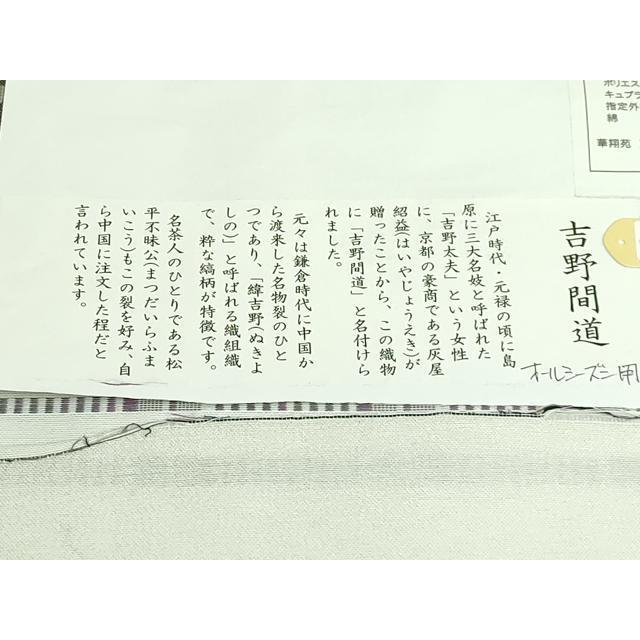 ポリエス
キュプラ
指定外
綿
華翔苑
吉野間道
オールシーズン用
江戸時代・元禄の頃に島
原に三大名妓と呼ばれた
「吉野太夫」という女性
に、京都の豪商である灰屋
紹益(はいやじょうえき)が
贈ったことから、この織物
に「吉野間道」と名付けら
れました。
元々は鎌倉時代に中国か
ら渡来した名物裂のひと
つであり、「緯吉野(ぬきよ
しの)」と呼ばれる織組織
で、粋な縞柄が特徴です。
名茶人のひとりである松
平不昧公(まつだいらふま
いこう)もこの裂を好み、自
ら中国に注文した程だと
言われています。